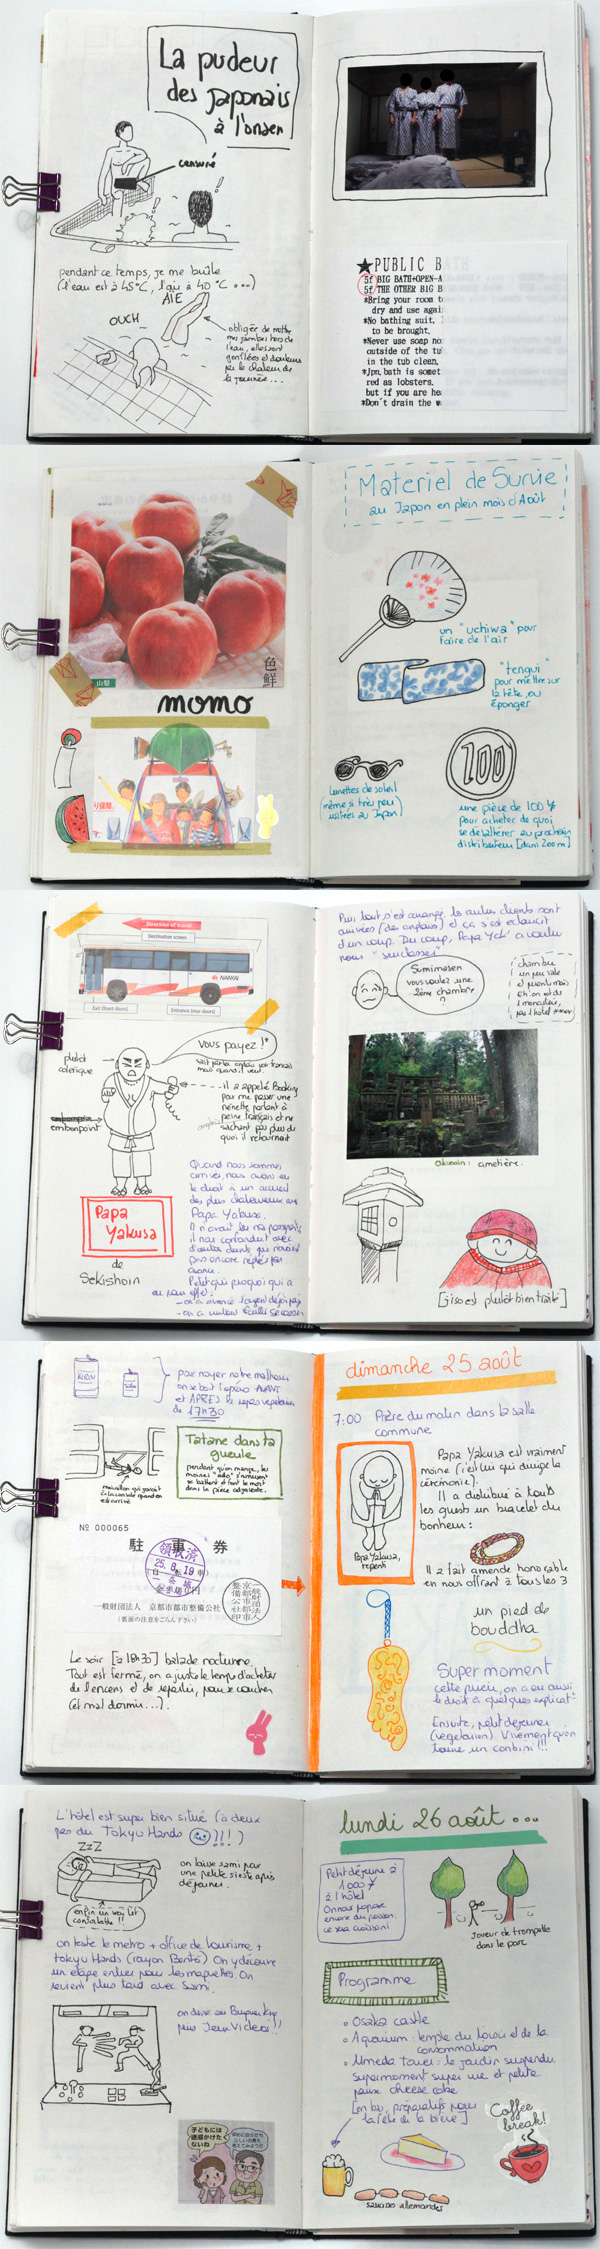 La pudeur
des japonais
à l'onsen
censuré
pendant ce temps, je me brûle
(l'eau est à 45°C, l'air à 40°C ...)
AÏE
OUCH
obligée de mettre
mes jambes hors de
l'eau, elles sont
gonflées et
la chaleur de
la journée...
★PUBLIC BATH
5f BIG BATH+OPEN-A
5f THE OTHER BIG B
*Bring your room t
dry and use agai
*No bathing suit.
to be brought.
*Never use soap no
outside of the tu
in the tub clean.
*Jpn. bath is somet
red as lobsters.
but if you are he
*Don't drain the w
色鮮
山梨
momo
Materiel de Survie
au Japon en plein mois d'Août
un "uchiwa" pour
faire de l'air
"tengui"
pour mettre sur
la tête, ou
éponger
100
lunettes de soleil
(même si très peu
usitées au Japon)
une pièce de 100 ¥
pour acheter de quoi
se désaltérer au prochain
distributeur [dans 200m]
Direction of travel
Destination screen
NANKAI
Exit (front doors)
Entrance (rear doors)
plutôt
colérique
vous payez !*
Il a appelé Booking
pour me passer une
nénette parlant à
peine français et ne
sachant pas plus de
quoi il retournait
embonpoint
Papa
Yakusa
de
Sekishoin
Quand nous sommes
arrivés, nous avons eu
le droit à un accueil
des plus chaleureux avec
Papa Yakusa.
Il n'avait lu nos passeports,
il nous confondait avec
d'autres clients qui n'avaient
pas encore réglé leur
chambre.
Petit quiproquo qui a
Puis tout s'est arrangé. les autres clients sont
arrivés (des anglais) et ça s'est éclairci
d'un coup. Du coup, Papa Yak' a voulu
nous "surclasser"
Sumimasen
vous voulez une
2ème chambre
?
chambre
un peu sale
Okunoin : cimetière.
[jiso est plutôt bien traité]
KIRIN
pour noyer notre malheur
on se boit l'apéro AVANT
et APRES le repas végétarien
de 17h30
Tatane dans ta
gueule
pendant qu'on mange, les
moines "ado" s'amusent
se battent et font le mort
dans la pièce adjacente.
No 000065
駐車券
領収済
25.8.19
一般財団法人 京都市都市整備公社
(裏面の注意をごらん下さい)
Le soir [à 18h30] balade nocturne.
Tout est fermé, on a juste le temps d'acheter
de l'encens et de repartir, pour se coucher
(et mal dormir...).
dimanche 25 août
7:00 Prière du matin dans la salle
commune
Papa Yakusa est vraiment
moine (c'est lui qui dirige la
cérémonie).
Il a distribué à touts
les guests un bracelet du
bonheur :
Papa Yakusa,
repenti
Il a fait amende honorable
en nous offrant à tous les 3
un pied de
bouddha
Super moment
cette prière, on a eu aussi
le droit à quelques explicat°
Ensuite, petit déjeuner
(végétarien). Vivement qu'on
trouve un conbini !!!
L'hôtel est super bien situé (à deux
pas du Tokyu Hands !!! )
ZZZ
on laisse sami pour
une petite sieste après
déjeuner.
enfin un vrai lit
confortable !!
on teste le metro + office de tourisme +
tokyu Hands (rayon Bento) On y découvre
un étage entier pour les maquettes. On
revient plus tard avec Sami.
on dîne au Burger King
puis Jeux Vidéos !!
子どもには
迷惑かけたく
ないね
lundi 26 août ...
Petit déjeuner à
1000 ¥
à l'hôtel
On nous propose
encore du poisson.
ce sera croissant
Joueur de trompette
dans le parc
Programme
Osaka castle
Aquarium : temple du loisir et de la
consommation
Umeda tower : le jardin suspendu
supermoment super vue et petite
pause cheese cake
[en bas, préparatifs pour
la fête de la bière]
Coffee
break!
saucisses allemandes